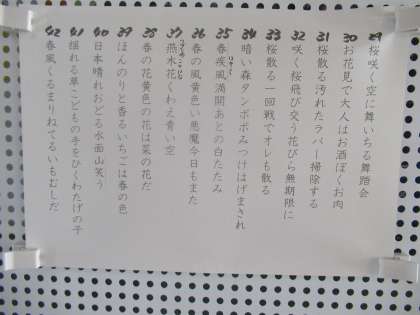 29 桜咲く空に舞いちる舞踏会
30 お花見で大人はお酒ぼくお肉
31 桜散る汚れたラバー掃除する
32 咲く桜飛び交う花びら無期限に
33 桜散る一回戦でオレも散る
34 暗い森タンポポみつけはげまされ
35 春疾風満開あとの白たたみ
36 春の風黄色い悪魔今日もまた
37 燕木花くわえ青い空
38 春の花黄色の花は菜の花だ
39 ほんのりと香るいちごは春の色
40 日本晴れおどる水面山笑う
41 揺れる草こどもの手をひくわたげの子
42 春風くるまりねてるいもむしだ